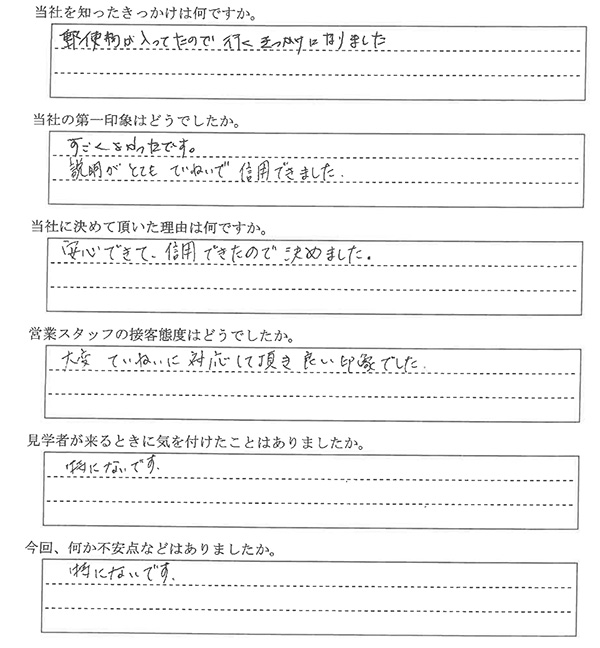 当社を知ったきっかけは何ですか。
郵便物が入ってたので行くきっかけになりました
当社の第一印象はどうでしたか。
すごくよかったです。
説明がとても ていねいで 信用できました.
当社に決めて頂いた理由は何ですか。
安心できて、信用できたので決めました。
営業スタッフの接客態度はどうでしたか。
大変 ていねいに 対応して頂き良い印象でした.
見学者が来るときに気を付けたことはありましたか。
特にないです.
今回、何か不安点などはありましたか。
特にないです.